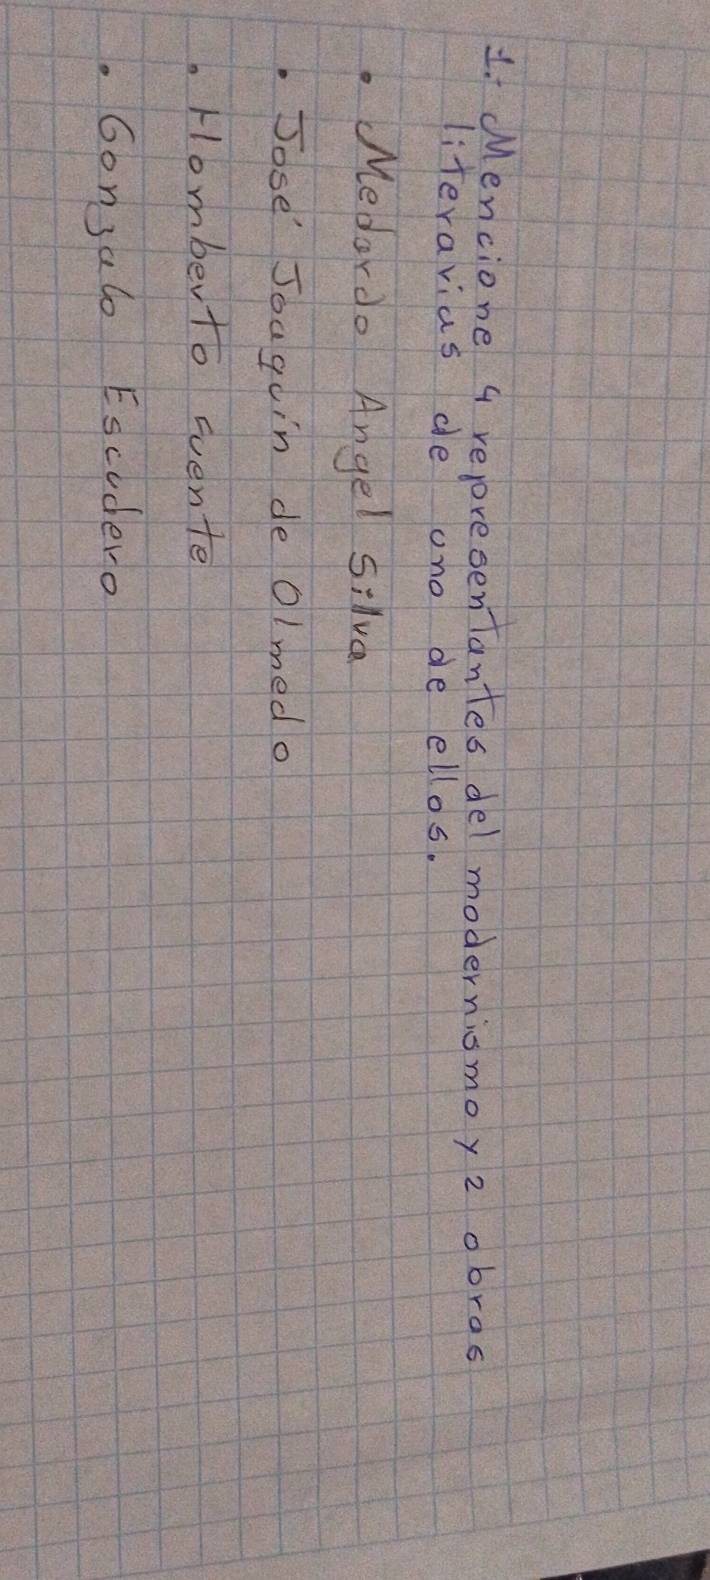 1.- Mencione 4 representantes del modernismo y 2 obras
literarias de uno de ellos.
• Medardo Angel Silva
• José Joaquín de Olmedo
• Homberto Fuente
• Gonzalo Escudero